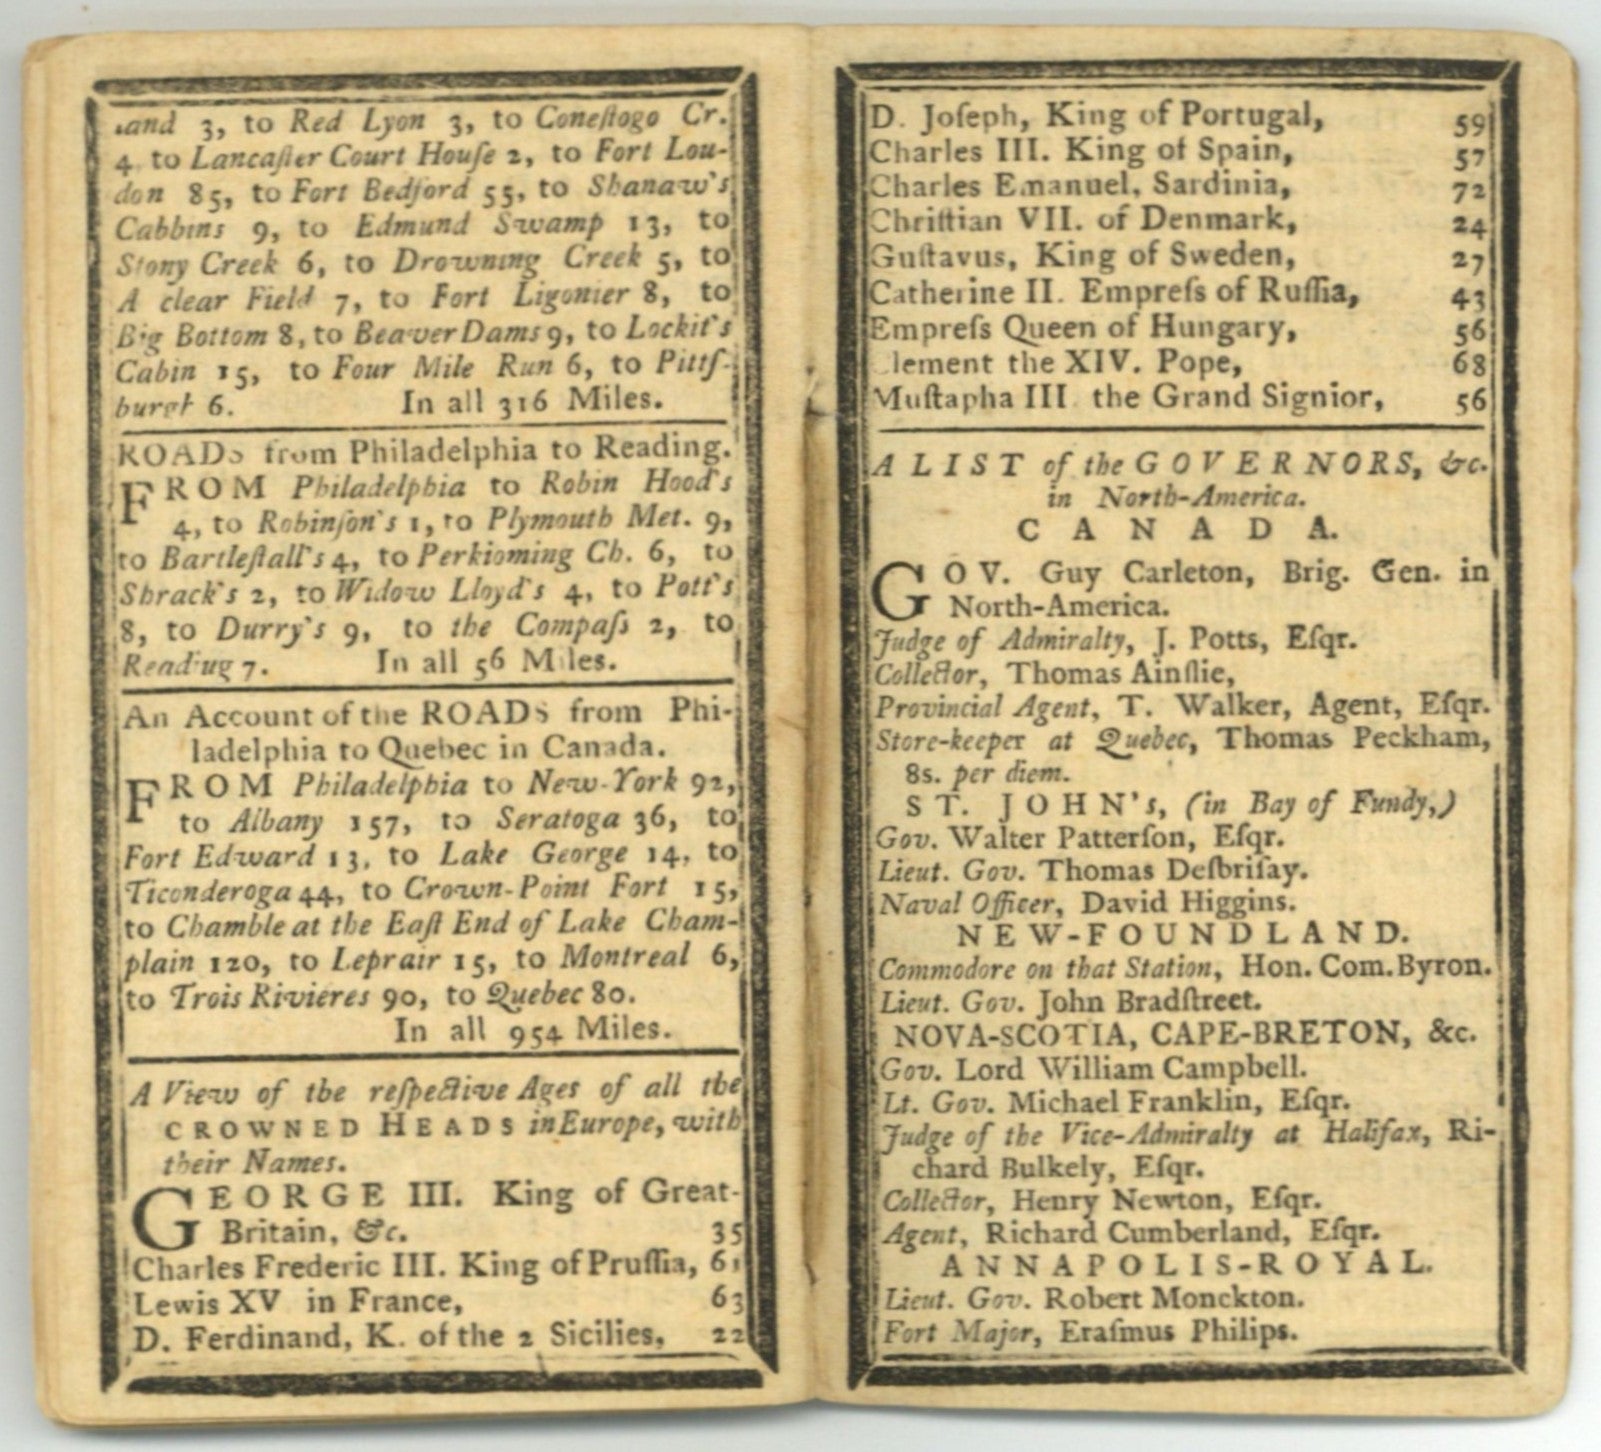 and 3, to Red Lyon 3, to Coneſtogo Cr.
4 to Lancaſter Court Houſe 2, to Fort Lou-
don 85, to Fort Bedford 55, to Shanaw's
Cabbins 9, to Edmund Swamp 13, to
Stony Creek 6, to Drowning Creek 5, to
A clear Field 7, to Fort Ligonier 8, to
Big Bottom 8, to Beaver Dams 9, to Lockit's
Cabin 15, to Four Mile Run 6, to Pittſ-
burgh 6. In all 316 Miles.
ROADs from Philadelphia to Reading.
FROM Philadelphia to Robin Hood's
4, to Robinſon's 1, to Plymouth Met. 9,
to Bartleſtall's 4, to Perkioming Ch. 6, to
Shrack's 2, to Widow Lloyd's 4, to Pott's
8, to Durry's 9, to the Compaſs 2, to
Readiug 7. In all 56 Miles.
An Account of the ROADs from Phi-
ladelphia to Quebec in Canada.
FROM Philadelphia to New-York 92,
to Albany 157, to Seratoga 36, to
Fort Edward 13, to Lake George 14, to
Ticonderoga 44, to Crown-Point Fort 15,
to Chamble at the Eaſt End of Lake Cham-
plain 120, to Leprair 15, to Montreal 6,
to Trois Rivieres 90, to Quebec 80.
In all 954 Miles.
A View of the reſpective Ages of all the
CROWNED HEADS in Europe, with
their Names.
GEORGE III. King of Great-
Britain, &c. 35
Charles Frederic III. King of Pruſſia, 61
Lewis XV in France, 63
D. Ferdinand, K. of the 2 Sicilies, 22
D. Joſeph, King of Portugal, 59
Charles III. King of Spain, 57
Charles Emanuel, Sardinia, 72
Chriſtian VII. of Denmark, 24
Guſtavus, King of Sweden, 27
Catherine II. Empreſs of Ruſſia, 43
Empreſs Queen of Hungary, 56
Clement the XIV. Pope, 68
Muſtapha III. the Grand Signior, 56
A LIST of the GOVERNORS, &c.
in North-America.
CANADA.
GOV. Guy Carleton, Brig. Gen. in
North-America.
Judge of Admiralty, J. Potts, Eſqr.
Collector, Thomas Ainſlie,
Provincial Agent, T. Walker, Agent, Eſqr.
Store-keeper at Quebec, Thomas Peckham,
8s. per diem.
ST. JOHN's, (in Bay of Fundy,)
Gov. Walter Patterſon, Eſqr.
Lieut. Gov. Thomas Deſbriſay.
Naval Officer, David Higgins.
NEW-FOUNDLAND.
Commodore on that Station, Hon. Com. Byron.
Lieut. Gov. John Bradſtreet.
NOVA-SCOTIA, CAPE-BRETON, &c.
Gov. Lord William Campbell.
Lt. Gov. Michael Franklin, Eſqr.
Judge of the Vice-Admiralty at Halifax, Ri-
chard Bulkely, Eſqr.
Collector, Henry Newton, Eſqr.
Agent, Richard Cumberland, Eſqr.
ANNAPOLIS-ROYAL.
Lieut. Gov. Robert Monckton.
Fort Major, Eraſmus Philips.